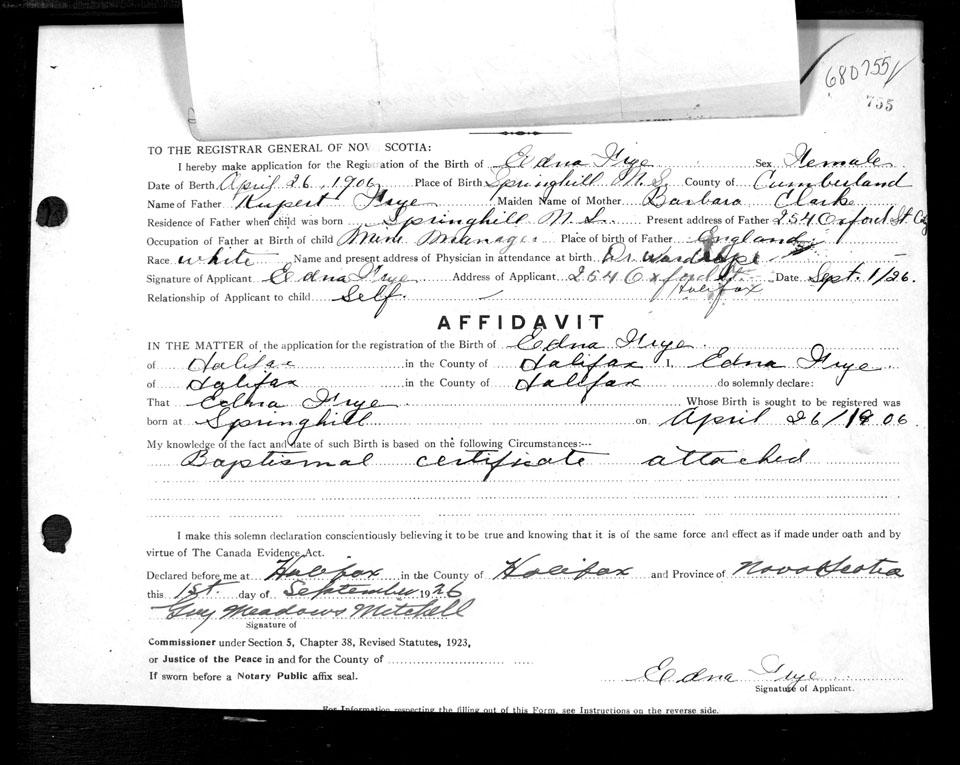 680755
755
TO THE REGISTRAR GENERAL OF NOV SCOTIA:
I hereby make application for the Registration of the Birth of Edna Frye Sex Female
Date of Birth April 26, 1906 Place of Birth Springhill N.S. County of Cumberland
Name of Father Rupert Frye Maiden Name of Mother Barbara Clarke
Residence of Father when child was born Springhill N.S. Present address of Father 254 Oxford St. City
Occupation of Father at Birth of child Mine Manager Place of birth of Father England
Race white Name and present address of Physician in attendance at birth Dr. Wardrope
Signature of Applicant Edna Frye Address of Applicant 254 Oxford St. Date Sept. 1/26.
Halifax
Relationship of Applicant to child Self.
AFFIDAVIT
IN THE MATTER of the application for the registration of the Birth of Edna Frye
of Halifax in the County of Halifax I, Edna Frye
of Halifax in the County of Halifax do solemnly declare:
That Edna Frye Whose Birth is sought to be registered was
born at Springhill on April 26/1906.
My knowledge of the fact and date of such Birth is based on the following Circumstances:---
Baptismal certificate attached
I make this solemn declaration conscientiously believing it to be true and knowing that it is of the same force and effect as if made under oath and by
virtue of The Canada Evidence Act.
Declared before me at Halifax in the County of Halifax and Province of Nova Scotia
this 1st. day of September 1926
Guy Meadows Mitchell
Signature of
Commissioner under Section 5, Chapter 38, Revised Statutes, 1923,
or Justice of the Peace in and for the County of
If sworn before a Notary Public affix seal.
Edna Frye
Signature of Applicant.
For Information respecting the filling out of this Form, see Instructions on the reverse side.